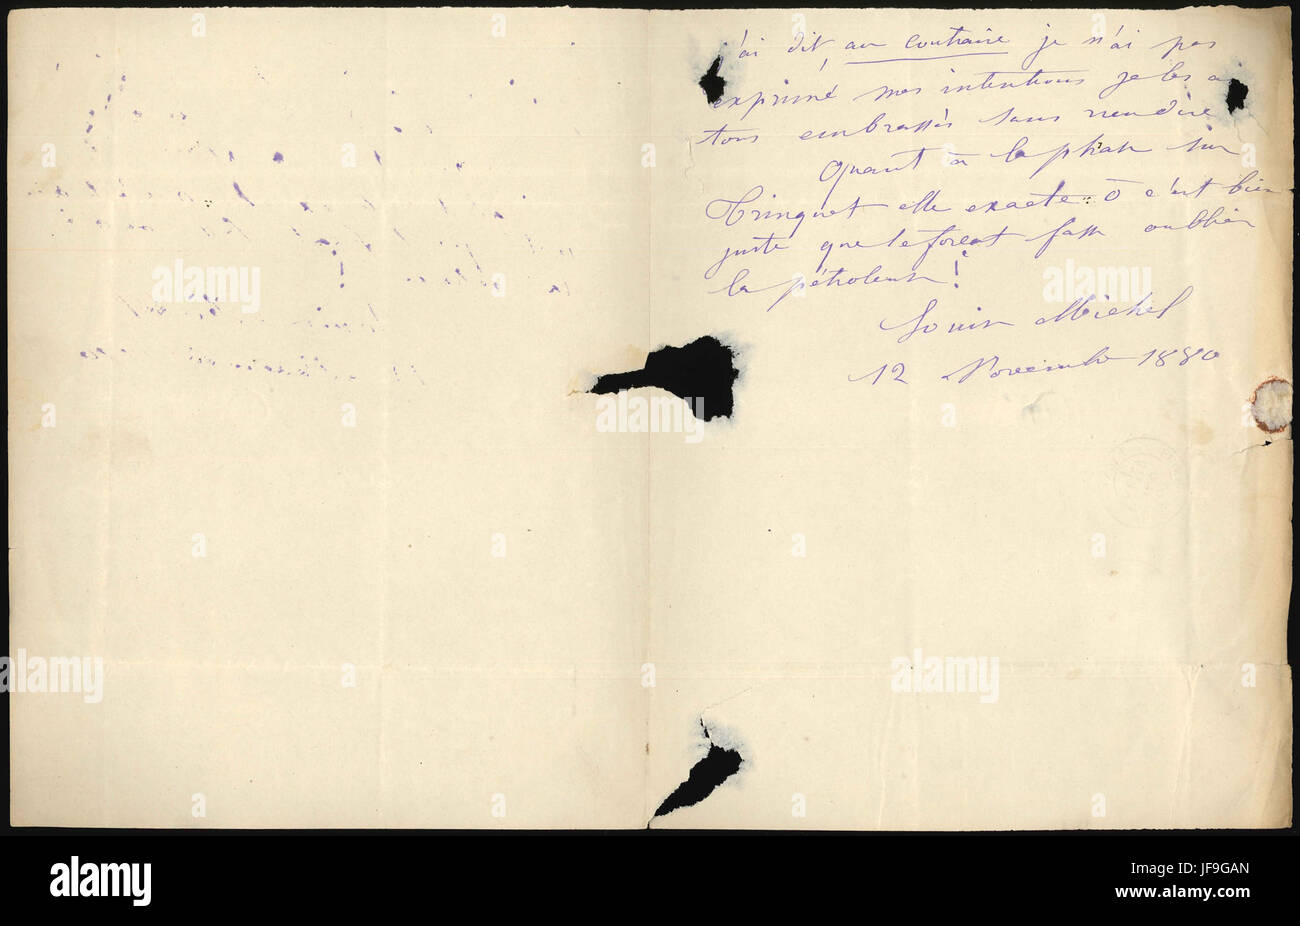 j'ai dit, au contraire je n'ai pas
exprimé mes intentions je les ai
tous embrassés sans rien dire
Quant à la phrase sur
Trinquet elle exacte ô c'est bien
juste que le forçat fasse oublier
la pétroleuse !
Louise Michel
12 Novembre 1880
alamy
alamy
Image ID: JF9GAN
www.alamy.com